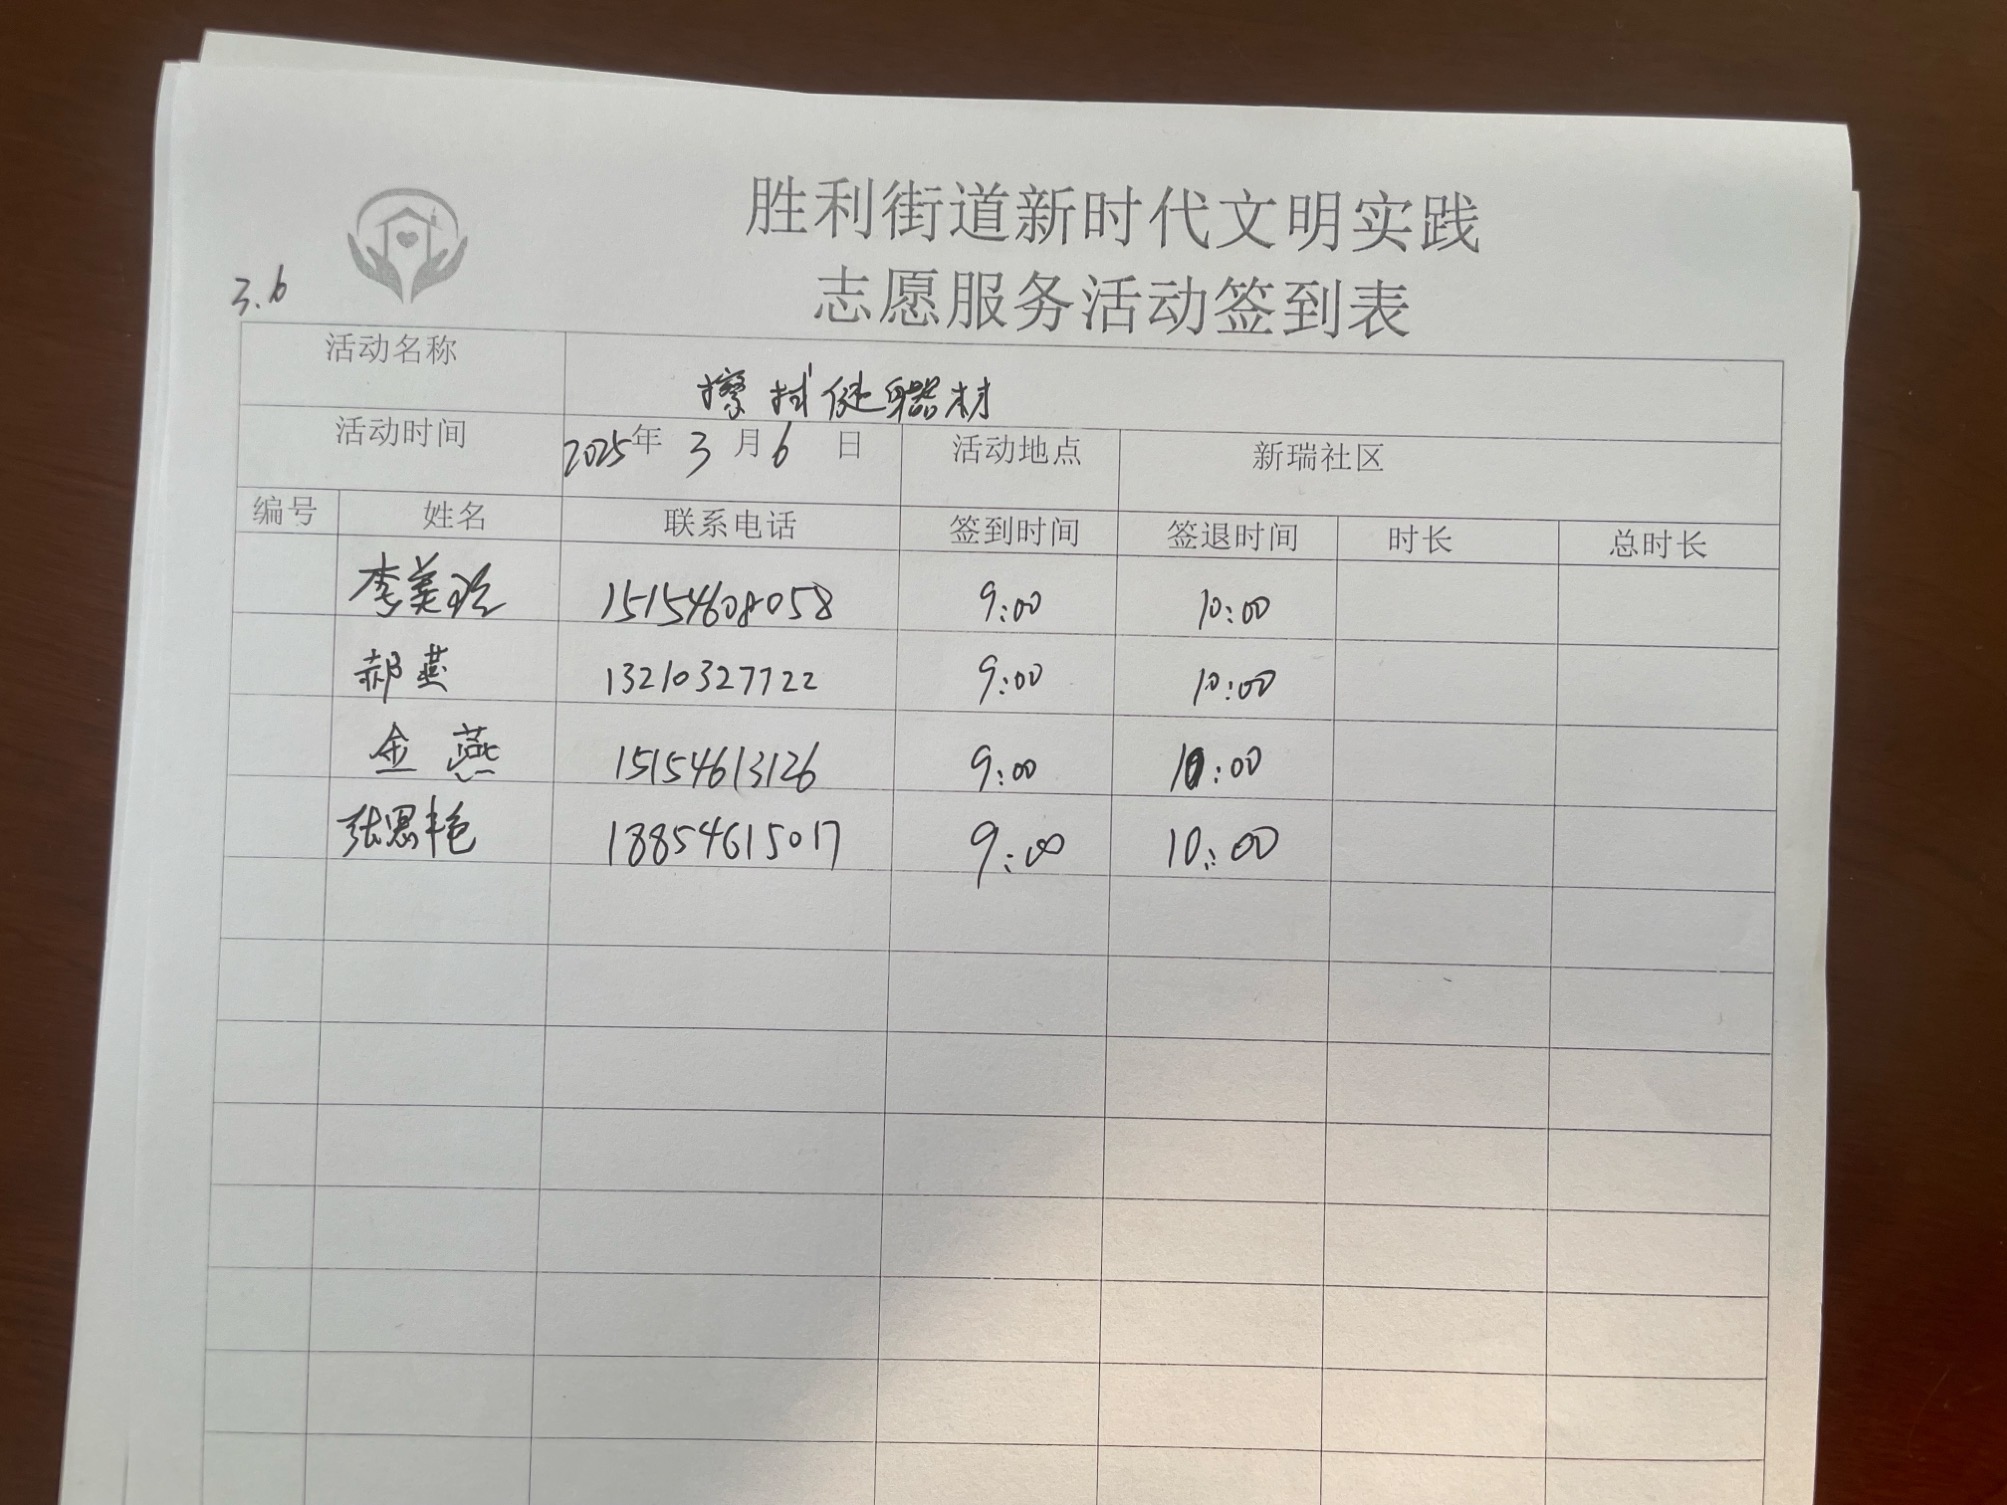 胜利街道新时代文明实践
志愿服务活动签到表
3.6
活动名称 擦拭健身器材
活动时间 2025年 3月6日 活动地点 新瑞社区
编号 姓名 联系电话 签到时间 签退时间 时长 总时长
李美玲 15154608058 9:00 10:00
郝燕 13210327722 9:00 10:00
金燕 15154613126 9:00 10:00
张恩艳 18854615017 9:00 10:00